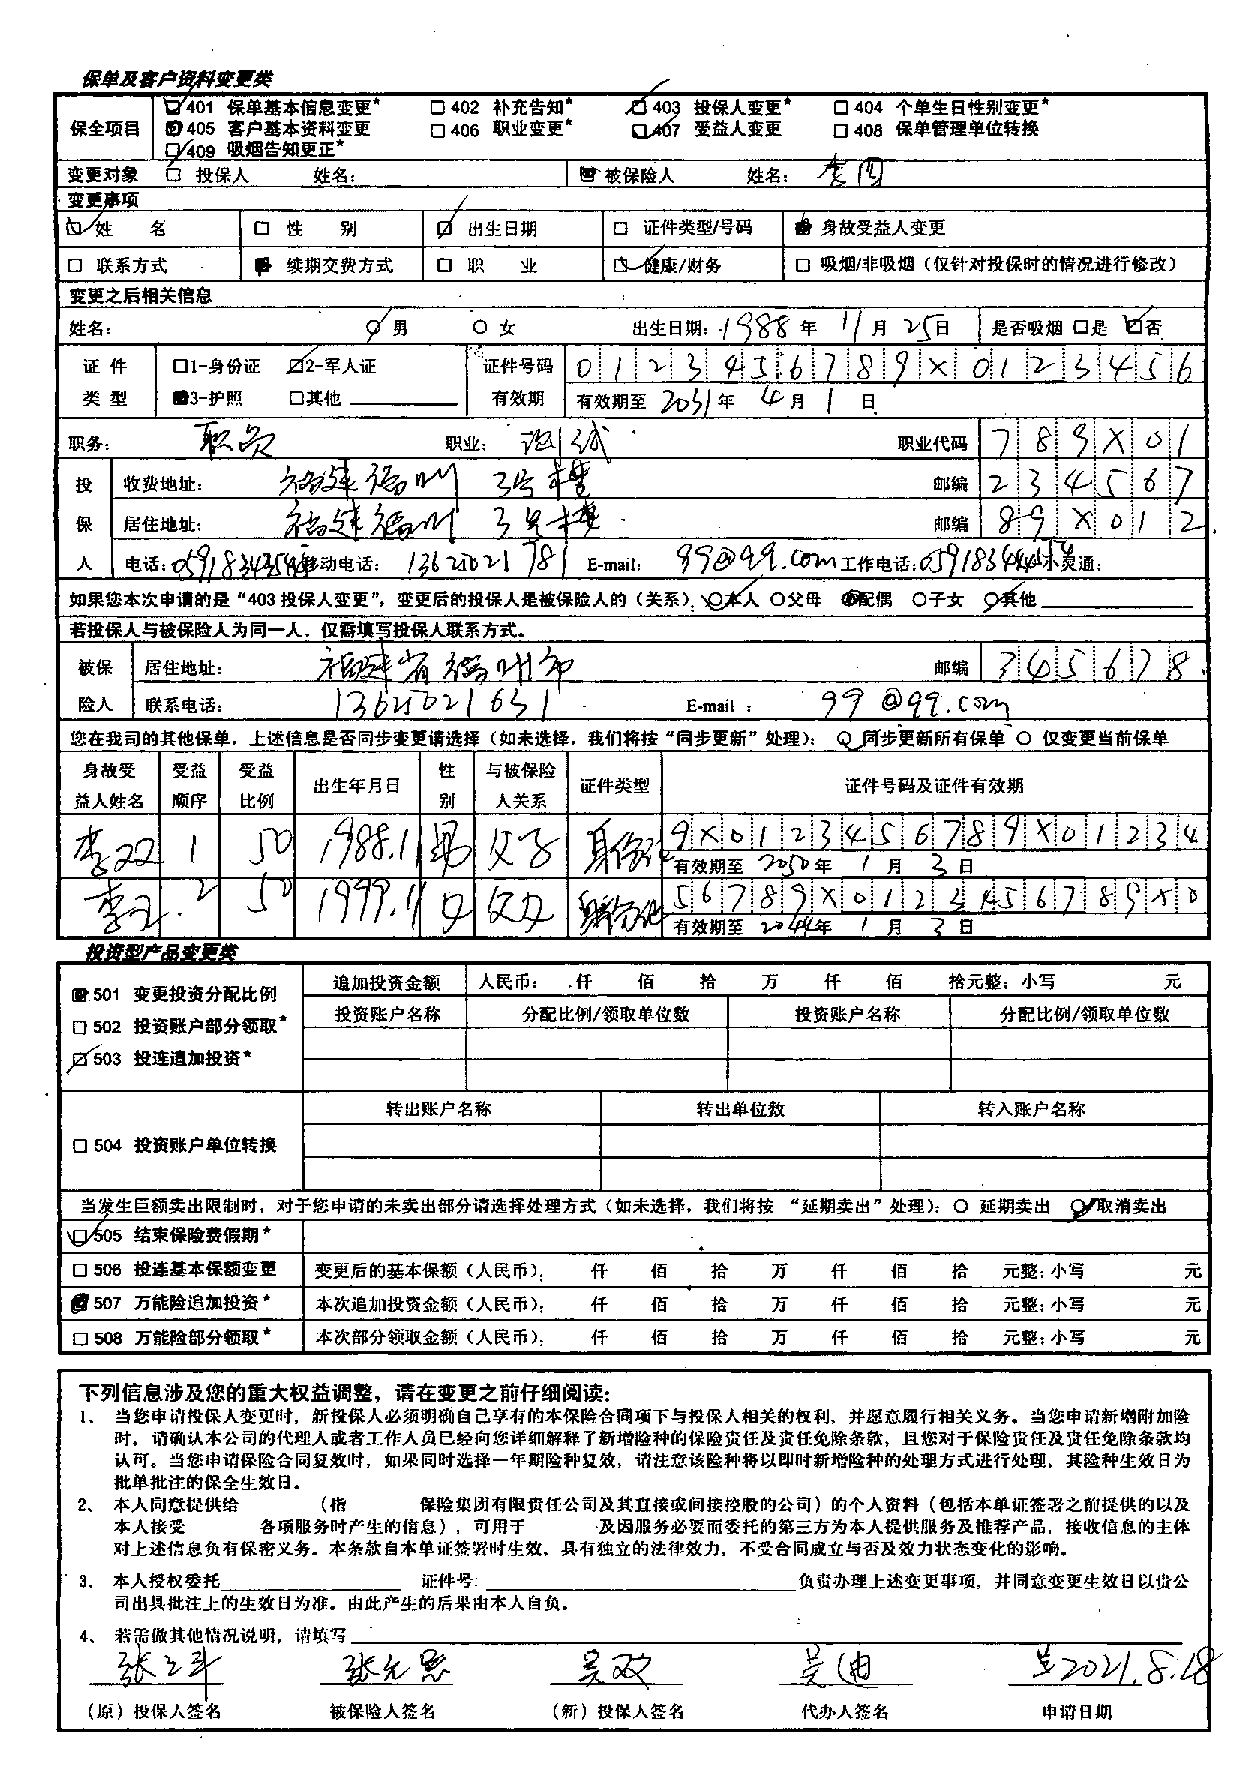 保单及客户资料变更类
保全项目 401 保单基本信息变更* 402 补充告知* 403 投保人变更* 404 个单生日性别变更*
405 客户基本资料变更 406 职业变更* 407 受益人变更 408 保单管理单位转换
409 吸烟告知更正*
变更对象 投保人 姓名: 被保险人 姓名: 李四
变更事项
姓 名 性 别 出生日期 证件类型/号码 身故受益人变更
联系方式 续期交费方式 职 业 健康/财务 吸烟/非吸烟(仅针对投保时的情况进行修改)
变更之后相关信息
姓名: 男 女 出生日期: 1988 年 11 月 25 日 是否吸烟 是 否
证 件 1-身份证 2-军人证 证件号码 0123456789X0123456
类 型 3-护照 其他 有效期 有效期至 2031 年 4 月 1 日
职务: 职员 职业: 测试 职业代码 789X01
投 收费地址: 福建福州 3号楼 邮编 234567
保 居住地址: 福建福州 3号楼 邮编 89X012
人 电话: 移动电话: 13625021781 E-mail: 99@99.com 工作电话: 小灵通:
如果您本次申请的是“403 投保人变更”,变更后的投保人是被保险人的(关系): 本人 父母 配偶 子女 其他
若投保人与被保险人为同一人,仅需填写投保人联系方式。
被保 居住地址: 福建省福州市 邮编 345678
险人 联系电话: 13625021631 E-mail : 99@99.com
您在我司的其他保单,上述信息是否同步变更请选择(如未选择,我们将按“同步更新”处理): 同步更新所有保单 仅变更当前保单
身故受益人姓名 受益顺序 受益比例 出生年月日 性别 与被保险人关系 证件类型 证件号码及证件有效期
李双 1 50 1988.1 男 父子 身份证 9X0123456789X01234
有效期至 2050 年 1 月 3 日
李 2 50 1999.11 女 父女 身份证 56789X0123456789X0
有效期至 2044 年 1 月 3 日
投资型产品变更类
501 变更投资分配比例 追加投资金额 人民币: 仟 佰 拾 万 仟 佰 拾元整: 小写 元
502 投资账户部分领取* 投资账户名称 分配比例/领取单位数 投资账户名称 分配比例/领取单位数
503 投连追加投资*
转出账户名称 转出单位数 转入账户名称
504 投资账户单位转换
当发生巨额卖出限制时,对于您申请的未卖出部分请选择处理方式(如未选择,我们将按 “延期卖出”处理): 延期卖出 取消卖出
505 结束保险费假期*
506 投连基本保额变更 变更后的基本保额(人民币): 仟 佰 拾 万 仟 佰 拾 元整: 小写 元
507 万能险追加投资* 本次追加投资金额(人民币): 仟 佰 拾 万 仟 佰 拾 元整: 小写 元
508 万能险部分领取* 本次部分领取金额(人民币): 仟 佰 拾 万 仟 佰 拾 元整: 小写 元
下列信息涉及您的重大权益调整,请在变更之前仔细阅读:
1、 当您申请投保人变更时,新投保人必须明确自己享有的本保险合同项下与投保人相关的权利,并愿意履行相关义务。当您申请新增附加险
时,请确认本公司的代理人或者工作人员已经向您详细解释了新增险种的保险责任及责任免除条款,且您对于保险责任及责任免除条款均
认可。当您申请保险合同复效时,如果同时选择一年期险种复效,请注意该险种将以即时新增险种的处理方式进行处理,其险种生效日为
批单批注的保全生效日。
2、 本人同意提供给 (指 保险集团有限责任公司及其直接或间接控股的公司)的个人资料(包括本单证签署之前提供的以及
本人接受 各项服务时产生的信息),可用于 及因服务必要而委托的第三方为本人提供服务及推荐产品,接收信息的主体
对上述信息负有保密义务。本条款自本单证签署时生效,具有独立的法律效力,不受合同成立与否及效力状态变化的影响。
3、 本人授权委托 证件号: 负责办理上述变更事项,并同意变更生效日以贵公
司出具批注上的生效日为准。由此产生的后果由本人自负。
4、 若需做其他情况说明,请填写
张三丰 张无忌 吴双 吴迪 2021.8.18
(原)投保人签名 被保险人签名 (新)投保人签名 代办人签名 申请日期